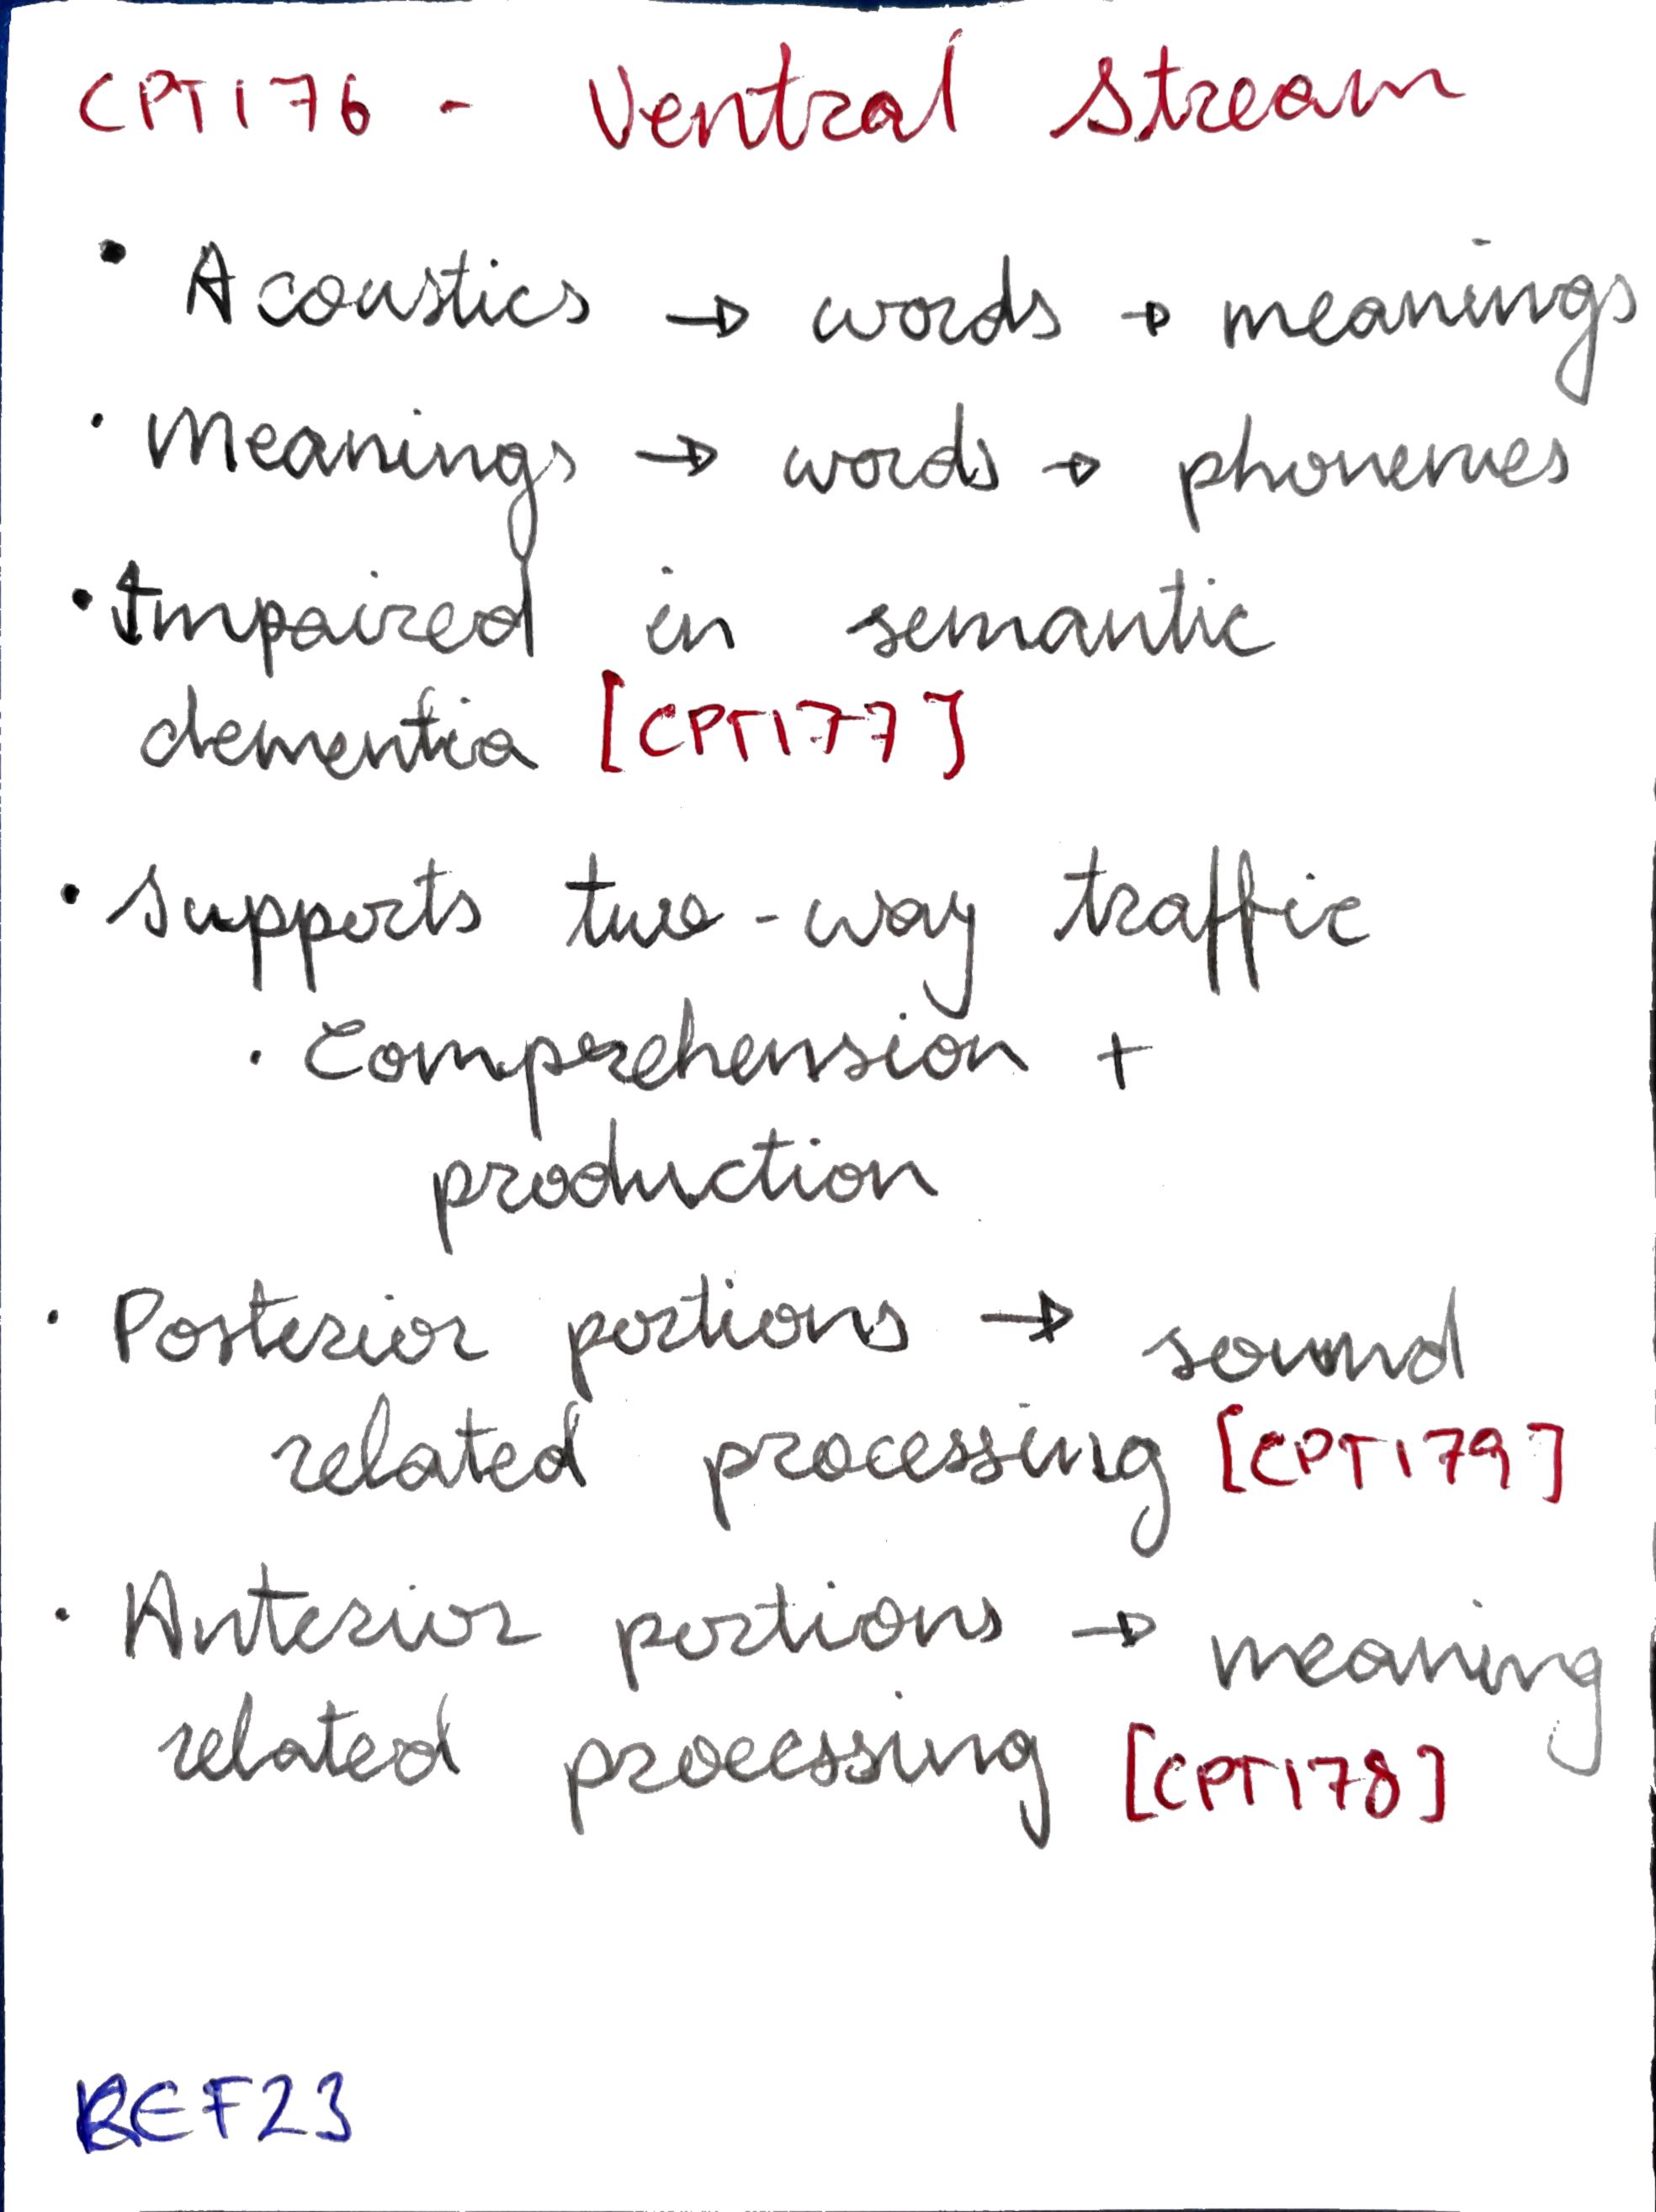 CPT176 - Ventral stream
• Acoustics → words → meanings
• Meanings → words → phonemes
• Impaired in semantic
dementia [CPT177]
• Supports two-way traffic
• Comprehension +
production
• Posterior portions → sound
related processing [CPT179]
• Anterior portions → meaning
related processing [CPT178]
REF23